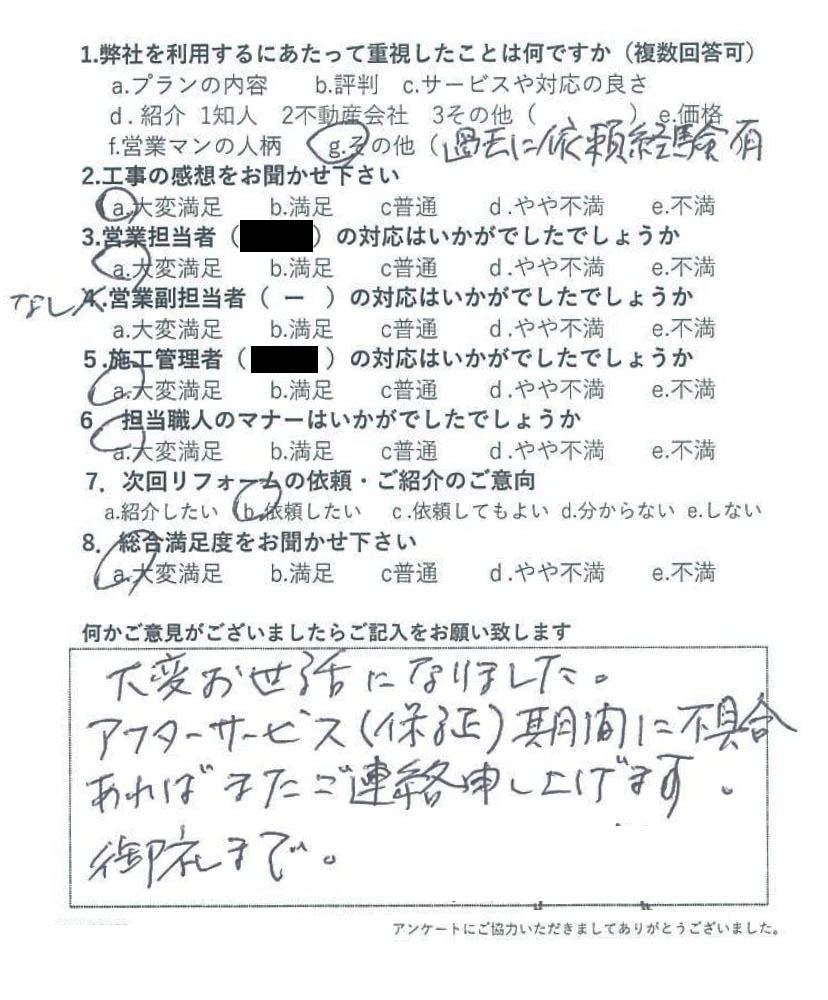 1.弊社を利用するにあたって重視したことは何ですか（複数回答可）
a.プランの内容 b.評判 c.サービスや対応の良さ
d.紹介 1知人 2不動産会社 3その他（ ） e.価格
f.営業マンの人柄 g.その他（過去に依頼経験有
2.工事の感想をお聞かせ下さい
a.大変満足 b.満足 c普通 d.やや不満 e.不満
3.営業担当者（ ）の対応はいかがでしたでしょうか
a.大変満足 b.満足 c普通 d.やや不満 e.不満
なし 4.営業副担当者（ ー ）の対応はいかがでしたでしょうか
a.大変満足 b.満足 c普通 d.やや不満 e.不満
5.施工管理者（ ）の対応はいかがでしたでしょうか
a.大変満足 b.満足 c普通 d.やや不満 e.不満
6. 担当職人のマナーはいかがでしたでしょうか
a.大変満足 b.満足 c普通 d.やや不満 e.不満
7. 次回リフォームの依頼・ご紹介のご意向
a.紹介したい b.依頼したい c.依頼してもよい d.分からない e.しない
8. 総合満足度をお聞かせ下さい
a.大変満足 b.満足 c普通 d.やや不満 e.不満
何かご意見がございましたらご記入をお願い致します
大変お世話になりました。
アフターサービス(保証)期間に不具合
あればまたご連絡申し上げます。
御礼まで。
アンケートにご協力いただきましてありがとうございました。